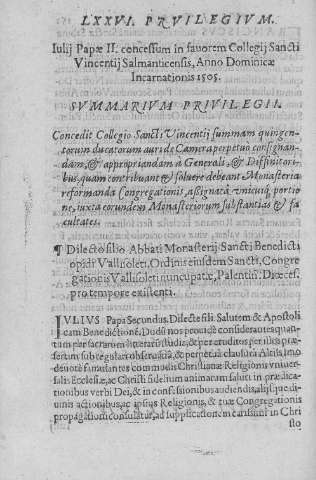 LXXVI. PRVILEGIVM.
Iulij Papæ II. concessum in fauorem Collegij Sancti
Vincentij Salmanticensis, Anno Dominicæ
Incarnationis 1505.
SVMMARIVM PRIVILEGII.
Concedit Collegio Sancti Vincentij summam quingen-
torum ducatorum auri de Camera perpetuo consignan-
dam, & appropriandam à Generali, & Diffinitori-
bus, quam contribuant & soluere debeant Monasteria
reformanda Congregationis, assignata vnicuiq; portio
ne, iuxta eorundem Monasteriorum substantias & fa
cultates.
¶ Dilecto filio Abbati Monasterij Sancti Benedicti
opidi Vallisoleti, Ordinis eiusdem Sancti, Congre
gationis Vallisoleti nuncupatæ, Palentiñ. Diœces.
pro tempore existenti.
IVLIVS Papa Secundus. Dilecte fili. Salutem & Apostoli
cam Benedictionẽ. Dudũ nos prouidè considerantes quan-
tum per sacrarum literarũ studia, & per eruditos per illa præ-
sertim sub regulari obseruãtia, & perpetua clausura Altissimo
deuotè famulantes commodis Christianæ Religionis vniuer-
salis Ecclesiæ, ac Christi fidelium animarum saluti in prædica-
tionibus verbi Dei, & in confessionibus audiendis, alijsque di-
uinis actionibus, ac ipsius Religionis, & tuæ Congregationis
propagationi consulatur, ad supplicationem carissimi in Chri
sto